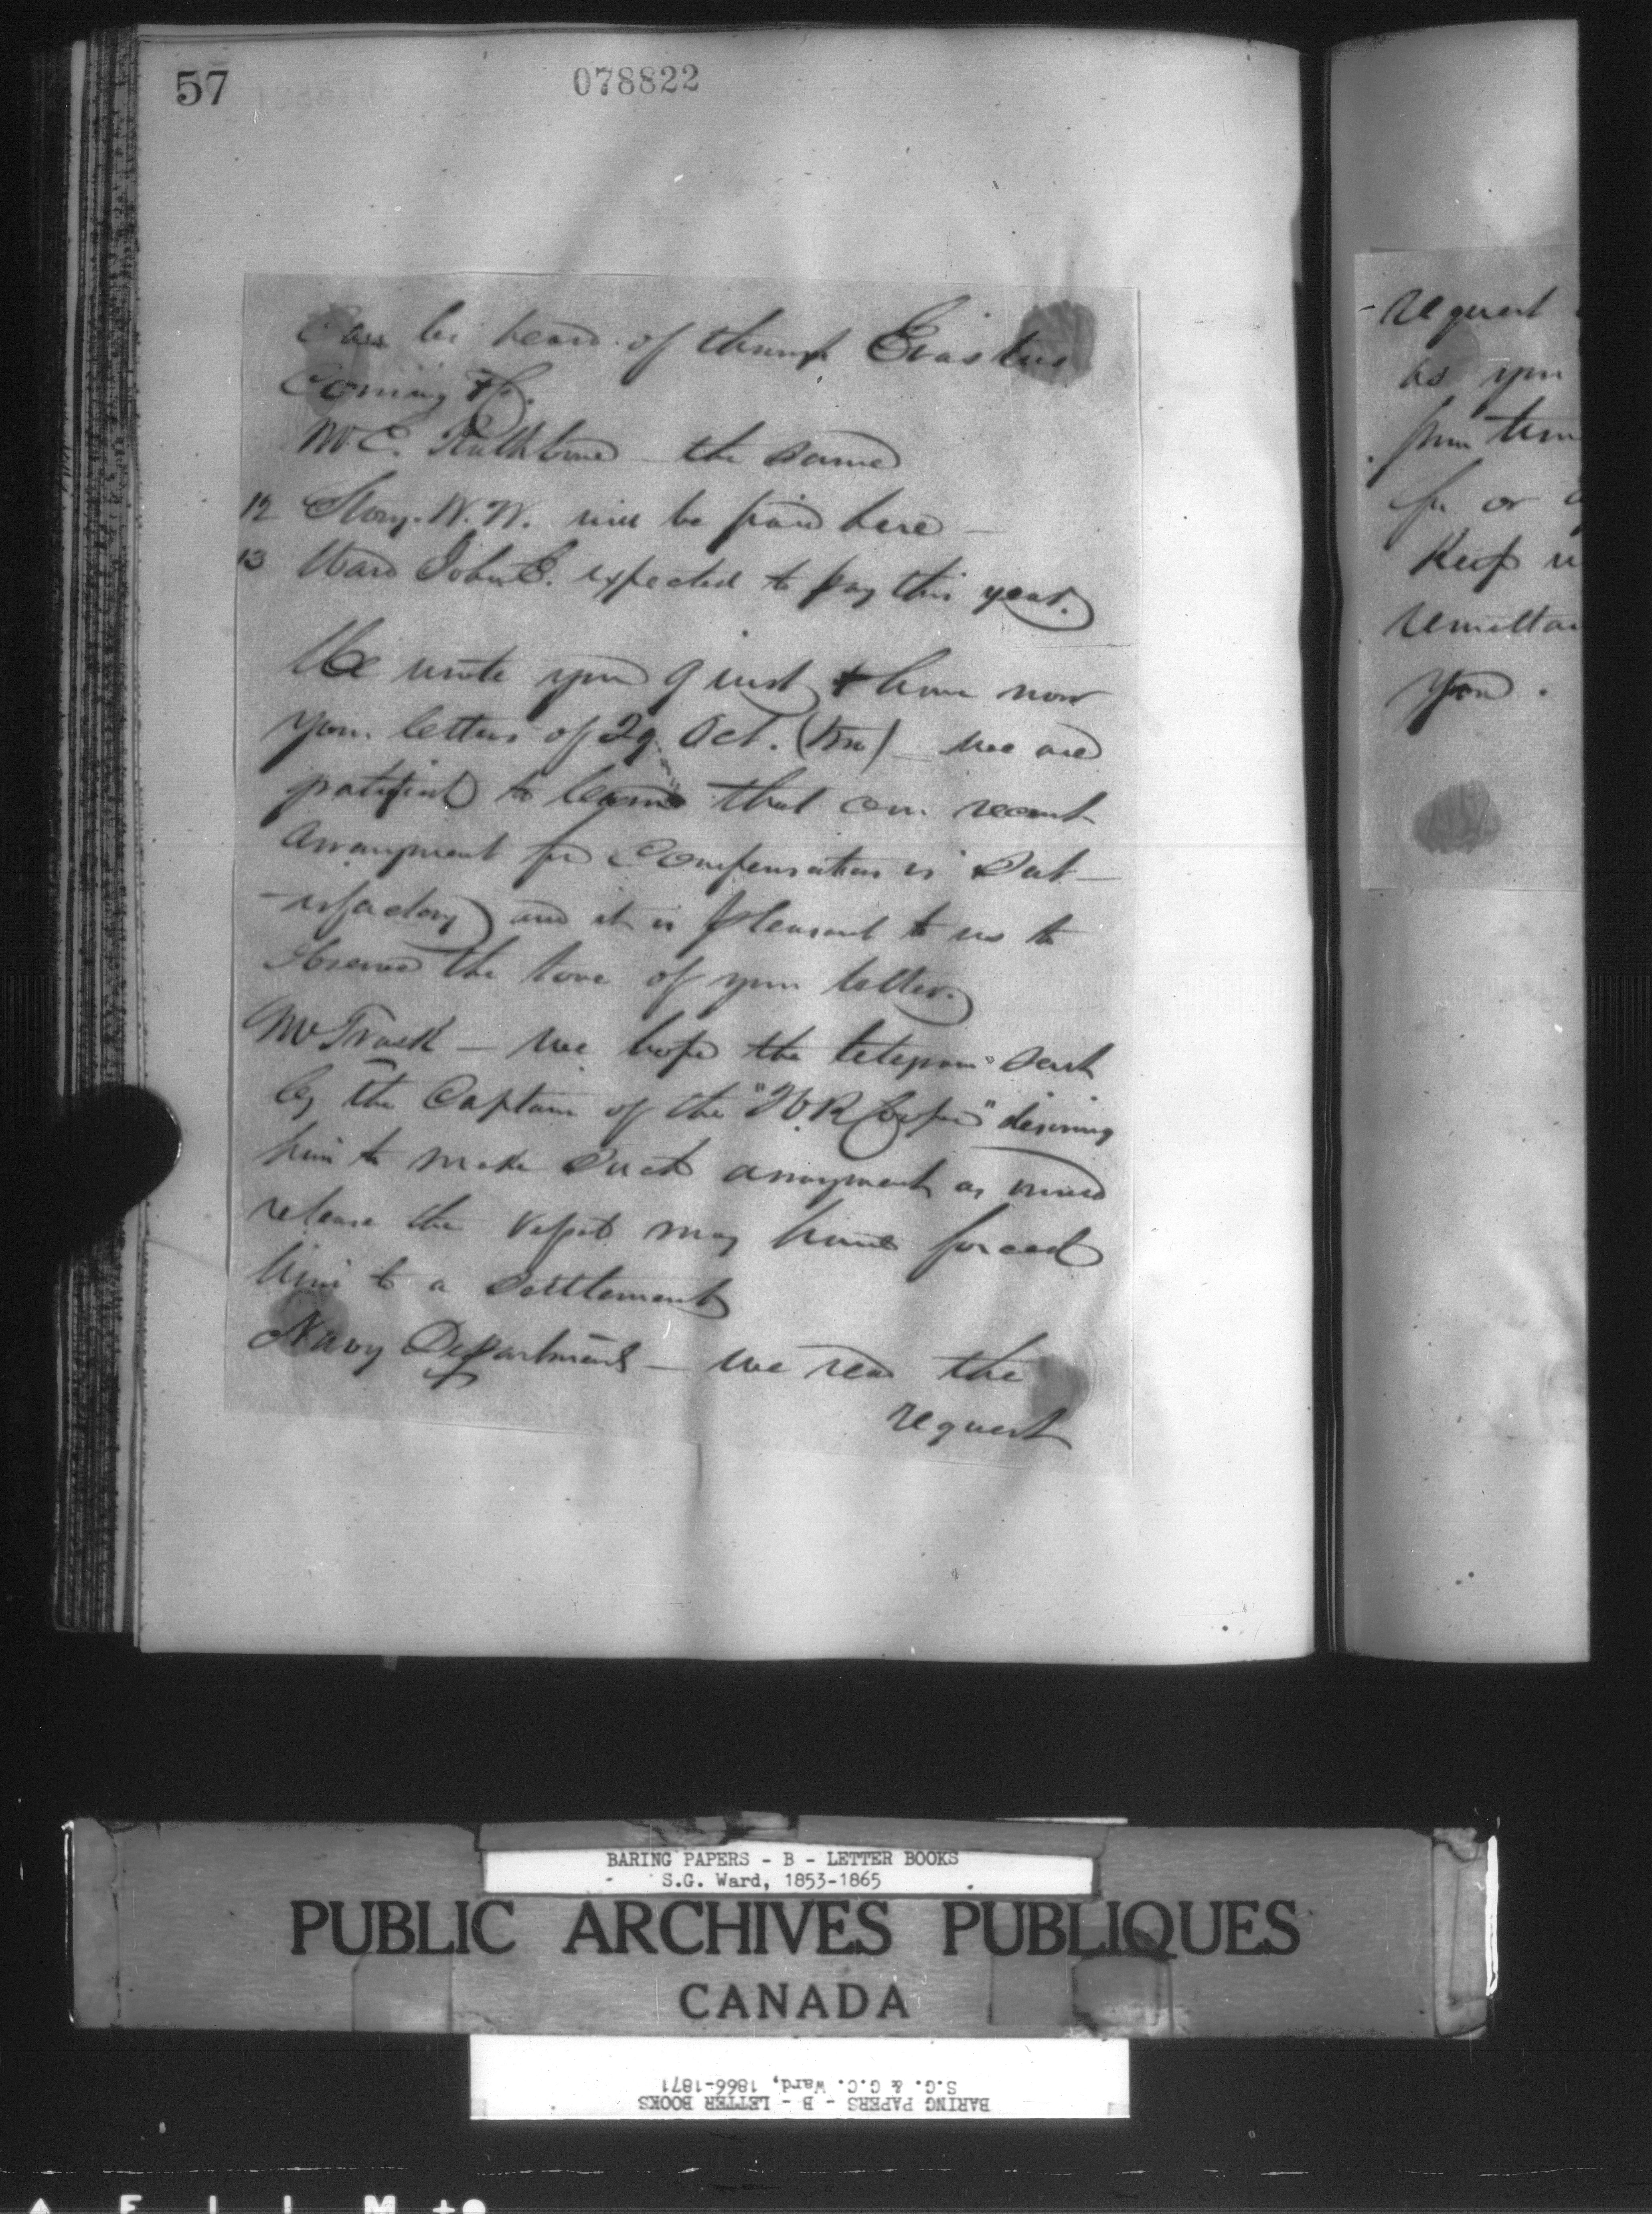 57
078822
Can be heard of through Erastus
Corning & Co.
Mr C. Rathbone the same
12 Story. W. W. will be paid here —
13 Ward John E. expected to pay this year.
We wrote you 9 inst & have now
your letters of 29 Oct. — we are
gratified to learn that our recent
arrangment for Compensation is Sat-
-isfactory and it is pleasant to us to
observe the tone of your letter.
Mr Trask — we hope the telegram sent
by the Captain of the "W.R." desiring
him to make such arrangment as would
release the vessel may have forced
him to a settlement
Navy Department — we read the
request
-request
as you
from time
for or
Keep
you.
BARING PAPERS - B - LETTER BOOKS
S.G. Ward, 1853-1865
PUBLIC ARCHIVES PUBLIQUES
CANADA
BARING PAPERS - B - LETTER BOOKS
S.G. & G.C. Ward, 1866-1871